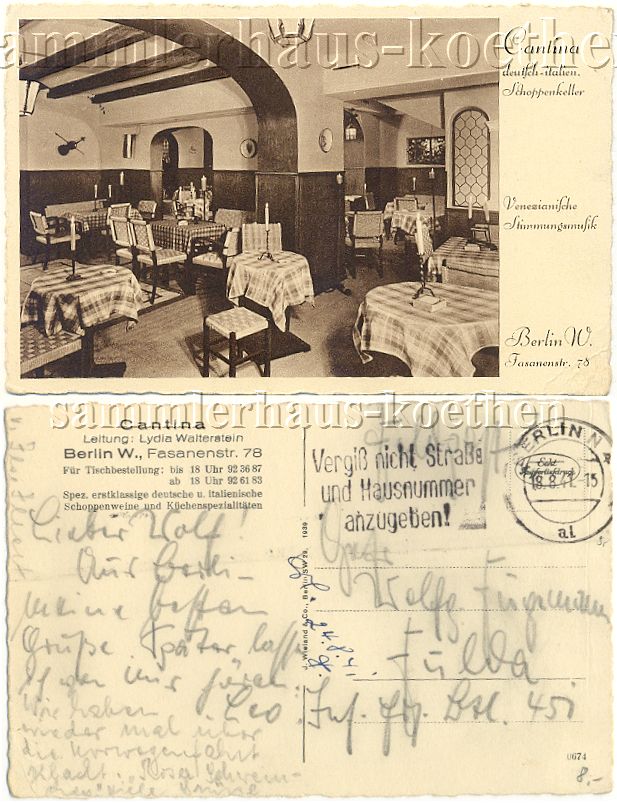 sammlerhaus-koethen.
Cantina
deutsch-italien.
Schoppenkeller
Venezianische
Stimmungsmusik
Berlin W.
Fasanenstr. 78
sammlerhaus-koethen
Cantina
Leitung: Lydia Walterstein
Berlin W., Fasanenstr. 78
Für Tischbestellung: bis 18 Uhr 92 36 87
ab 18 Uhr 92 61 83
Spez. erstklassige deutsche u. italienische
Schoppenweine und Küchenspezialitäten
Vergiß nicht Straße
und Hausnummer
anzugeben!
BERLIN N
18.8.41.-15
al
Lieber Wolf!
Aus Berlin
meine besten
Grüße. Später
ich von mir hören.
Leo.
Wir haben
wieder mal über
die Norwegenfahrt
viele Grüße
J. Wieland & Co., Berlin SW 29, 1939
24.8.41.
Wolfg.
Fulda
Inf. 451
0674
8,-